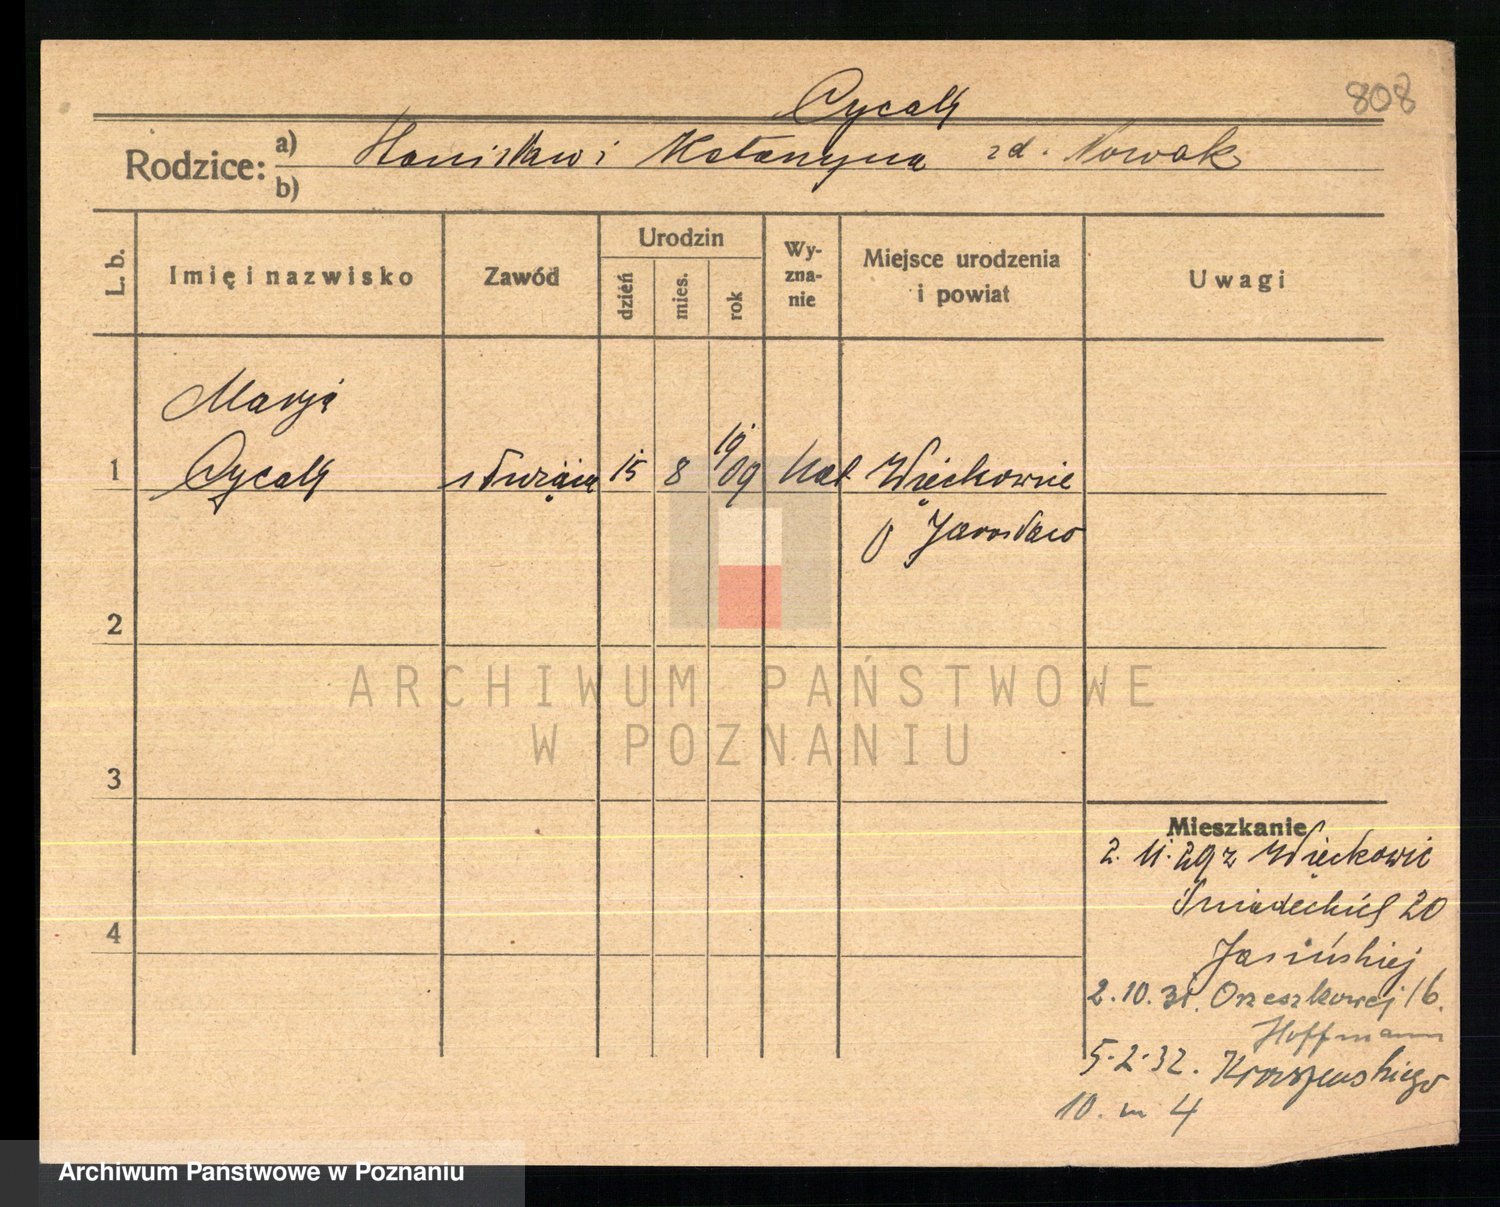 Cycak
808
Rodzice: a) Stanisław i Katarzyna zd. Nowak
b)
L. b.
Imię i nazwisko
Zawód
Urodzin
dzień
mies.
rok
Wy-
zna-
nie
Miejsce urodzenia
i powiat
Uwagi
Marja
1 Cycak służąca 15 8 19/09 kat Więckowice
p Jarosław
2
3
4
ARCHIWUM PAŃSTWOWE
W POZNANIU
Mieszkanie
2. 11. 29 z Więckowic
Śniadeckich 20
Jasińskiej
2. 10. 31. Orzeszkowej 16.
Hoffmann
5. 2. 32. Kraszewskiego
10. m 4
Archiwum Państwowe w Poznaniu